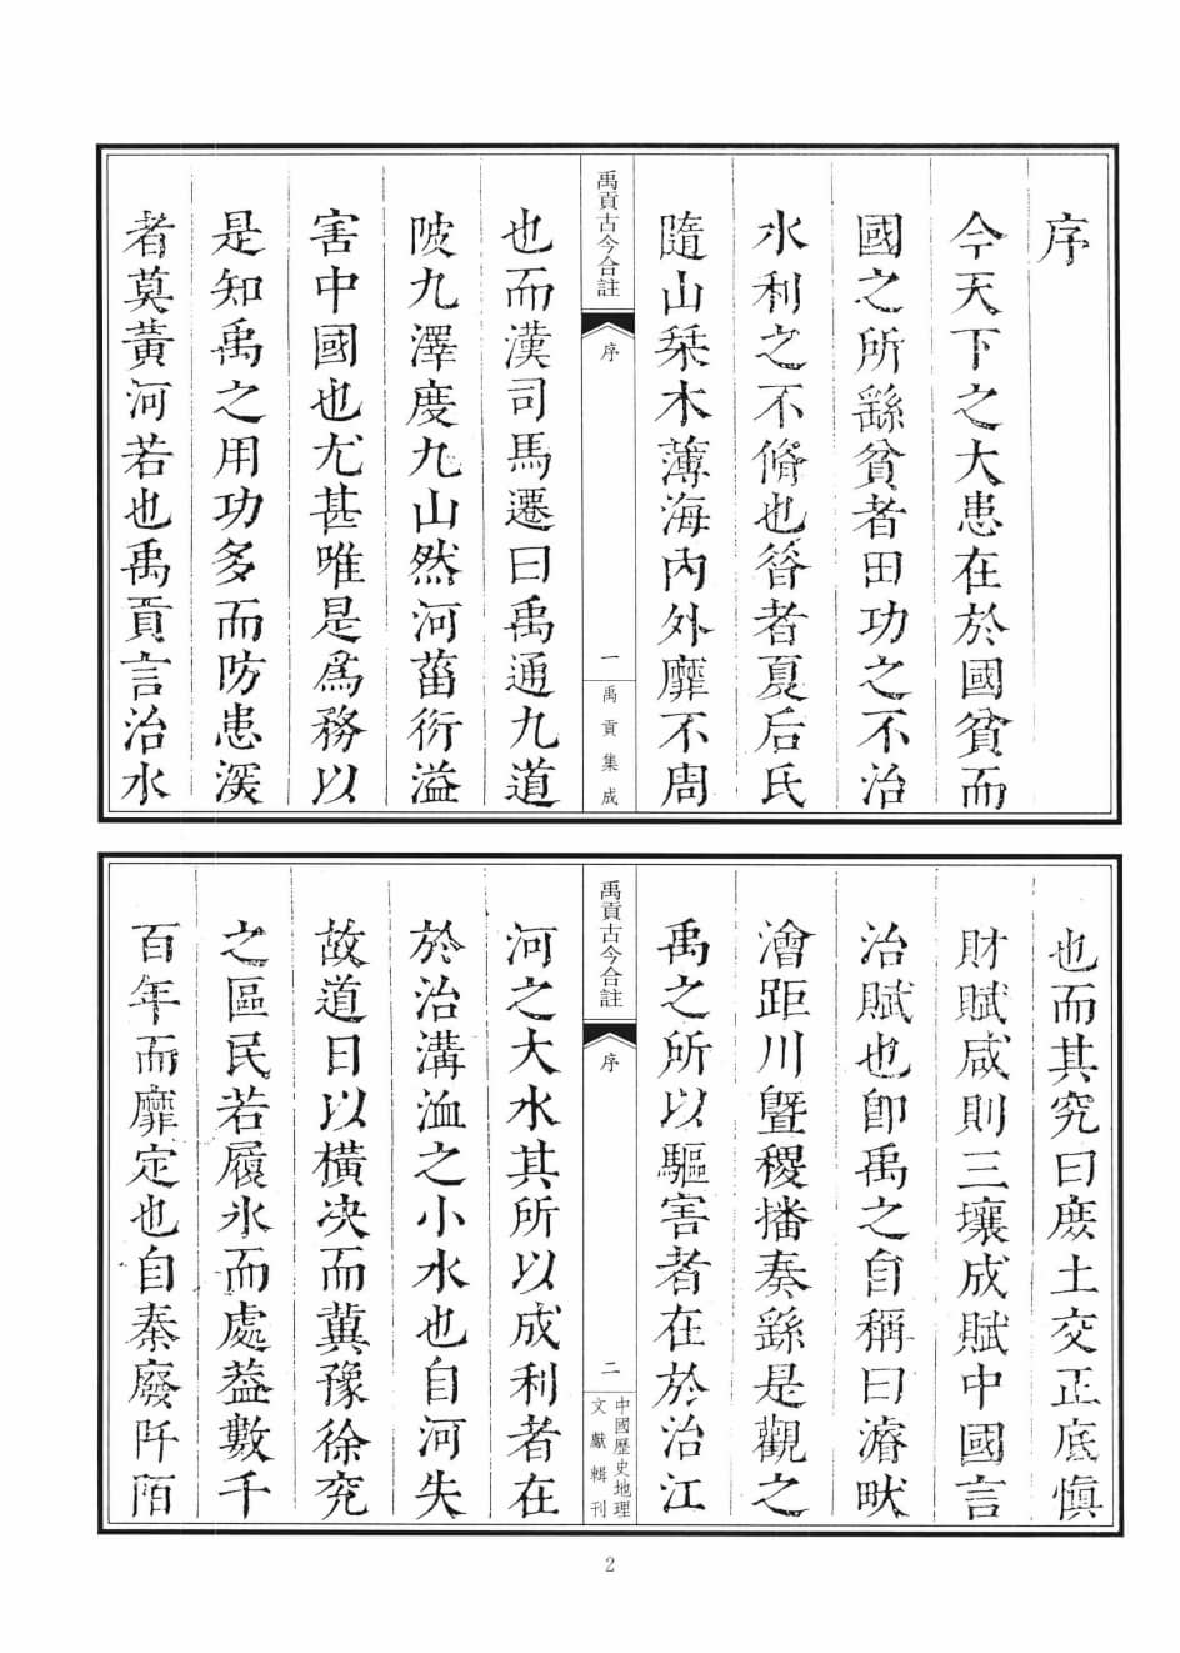 序
今天下之大患在於國貧而
國之所繇貧者田功之不治
水利之不脩也昝者夏后氏
隨山栞木薄海內外靡不周
禹貢古今合註
序
一
禹貢集成
也而漢司馬遷曰禹通九道
陂九澤度九山然河菑衍溢
害中國也尤甚唯是爲務以
是知禹之用功多而防患深
者莫黃河若也禹貢言治水
也而其究曰庶土交正底慎
財賦咸則三壤成賦中國言
治賦也卽禹之自稱曰濬畎
澮距川暨稷播奏繇是觀之
禹之所以驅害者在於治江
禹貢古今合註
序
二
中國歷史地理
文獻輯刊
河之大水其所以成利者在
於治溝洫之小水也自河失
故道日以橫决而冀豫徐兖
之區民若履氷而處葢數千
百年而靡定也自秦廢阡陌
2